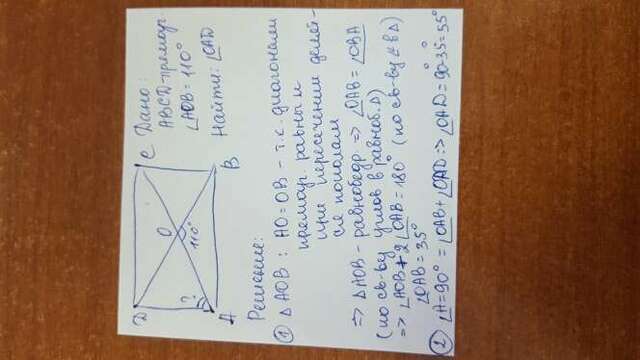 Дано:
ABCD-прямоуг.
∠AOB = 110°
Найти: ∠CAD
D
C
O
110°
?
A
B
Решение:
① △AOB : AO = OB - т.к. диагонали
прямоуг. равны и
при пересечении делят-
ся пополам
=> △AOB - равнобедр. => ∠OAB = ∠OBA
(по св-ву углов в равноб. △)
=> ∠AOB + 2∠OAB = 180° (по св-ву ∠ в △)
∠OAB = 35°
② ∠A = 90° = ∠OAB + ∠OAD => ∠OAD = 90°-35° = 55°